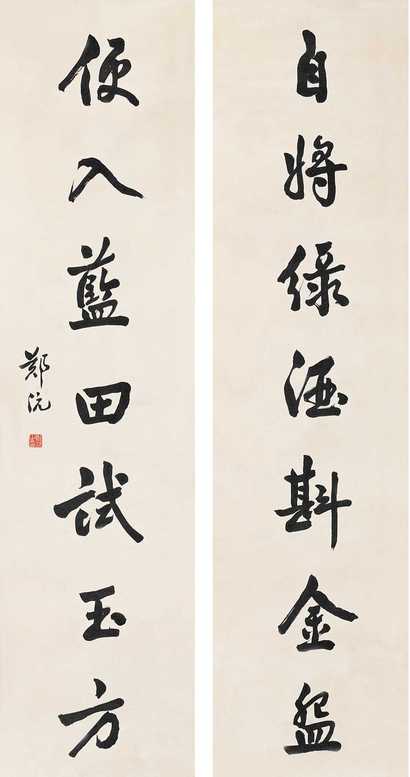 自將綠酒斟金盌
便入藍田試玉方
鄭沅